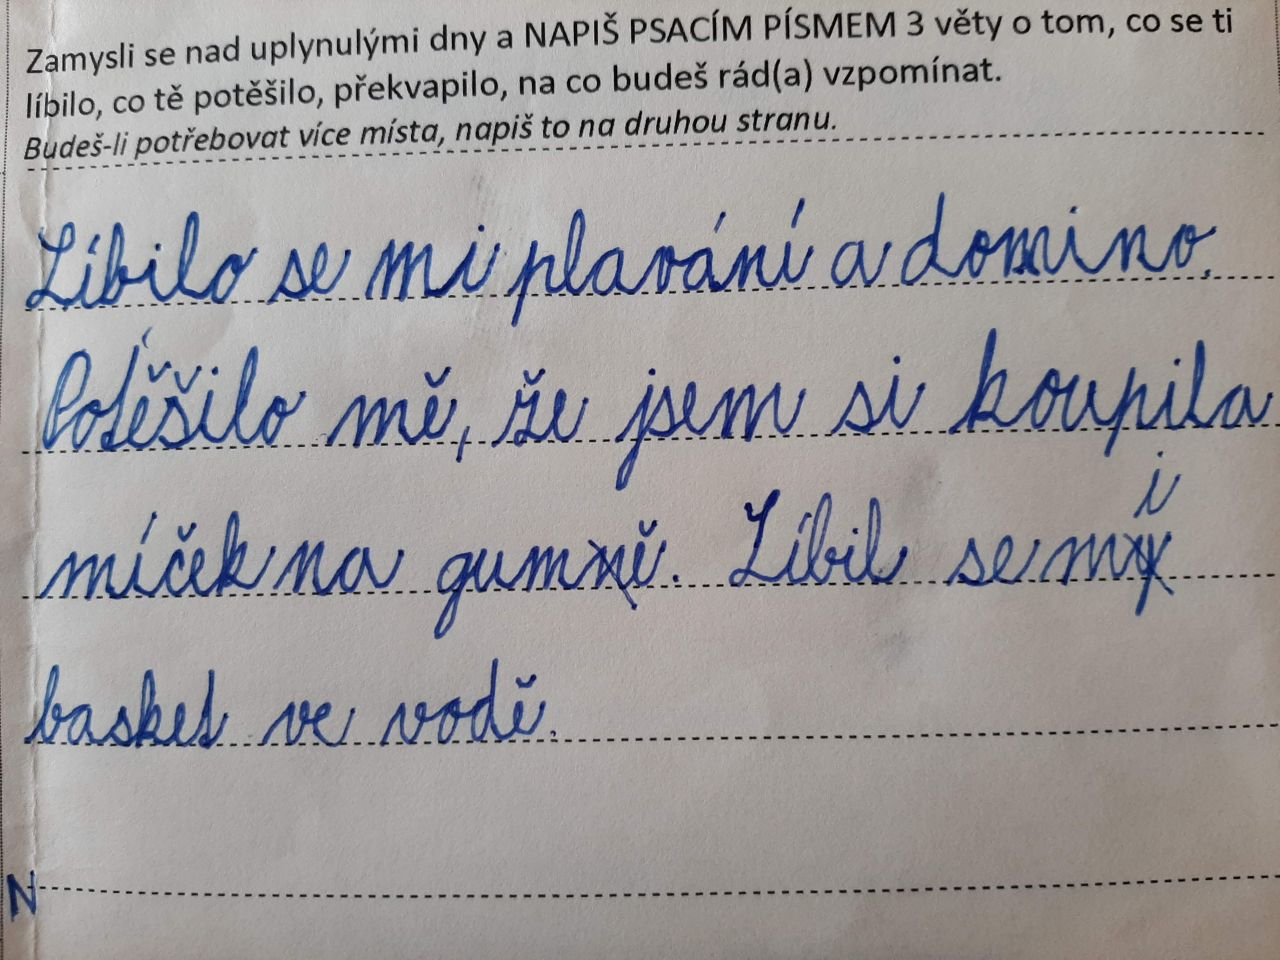 Zamysli se nad uplynulými dny a NAPIŠ PSACÍM PÍSMEM 3 věty o tom, co se ti
líbilo, co tě potěšilo, překvapilo, na co budeš rád(a) vzpomínat.
Budeš-li potřebovat více místa, napiš to na druhou stranu.
Líbilo se mi plavání a domino.
Potěšilo mě, že jsem si koupila
míček na gumě. Líbil se mi
basket ve vodě.
N